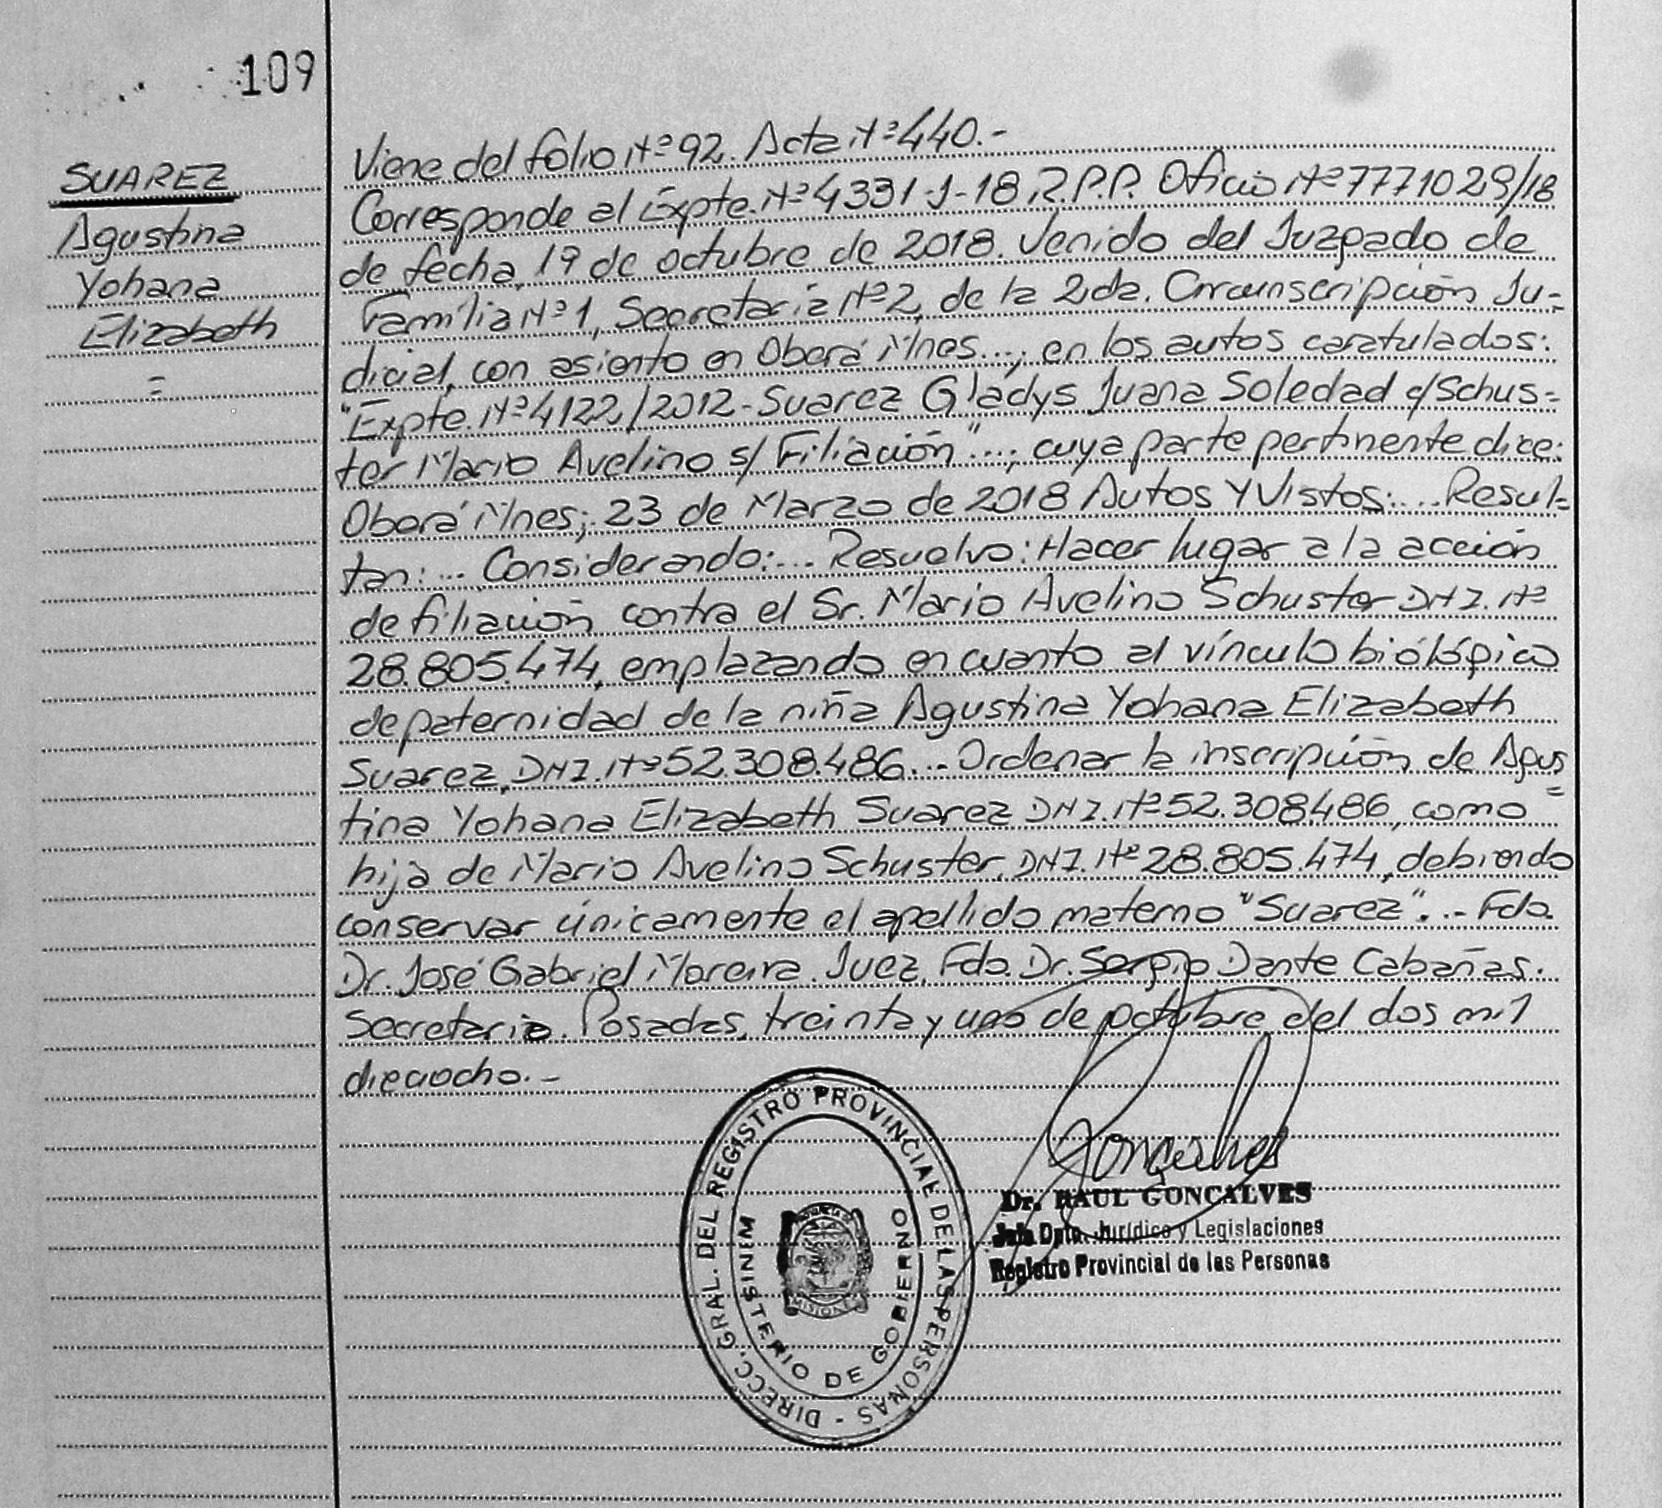 109
SUAREZ
Agustina
Yohana
Elizabeth
=
Viene del folio Nº 92. Acta Nº 440.-
Corresponde al Expte. Nº 4331-J-18 R.P.P. Oficio Nº 7771029/18
de fecha, 19 de octubre de 2018. Venido del Juzgado de
Familia Nº 1, Secretaria Nº 2, de la 2da. Circunscripción Ju=
dicial, con asiento en Oberá Mnes...; en los autos caratulados:
"Expte. Nº 4122/2012-Suarez Gladys Juana Soledad c/Schus=
ter Mario Avelino s/ Filiación"...; cuya parte pertinente dice:
Oberá Mnes; 23 de Marzo de 2018 Autos Y Vistos:... Resul=
tan:... Considerando:... Resuelvo: Hacer lugar a la acción
de filiación contra el Sr. Mario Avelino Schuster DNI. Nº
28.805.474, emplazando en cuanto al vínculo biológico
de paternidad de la niña Agustina Yohana Elizabeth
Suarez, DNI. Nº 52.308.486...- Ordenar la inscripción de Agus
=
tina Yohana Elizabeth Suarez DNI. Nº 52.308486, como
hija de Mario Avelino Schuster, DNI. Nº 28.805.474, debiendo
conservar únicamente el apellido materno "Suarez"...- Fdo.
Dr. José Gabriel Moreira. Juez, Fdo. Dr. Sergio Dante Cabañas.
Secretario. Posadas, treinta y uno de octubre del dos mil
dieciocho.-
DIRECC. GRAL. DEL REGISTRO PROVINCIAL DE LAS PERSONAS -
MINISTERIO DE GOBIERNO
MISIONES
Gonçalves
Dr. RAUL GONCALVES
Jefe Dpto. Jurídico y Legislaciones
Registro Provincial de las Personas